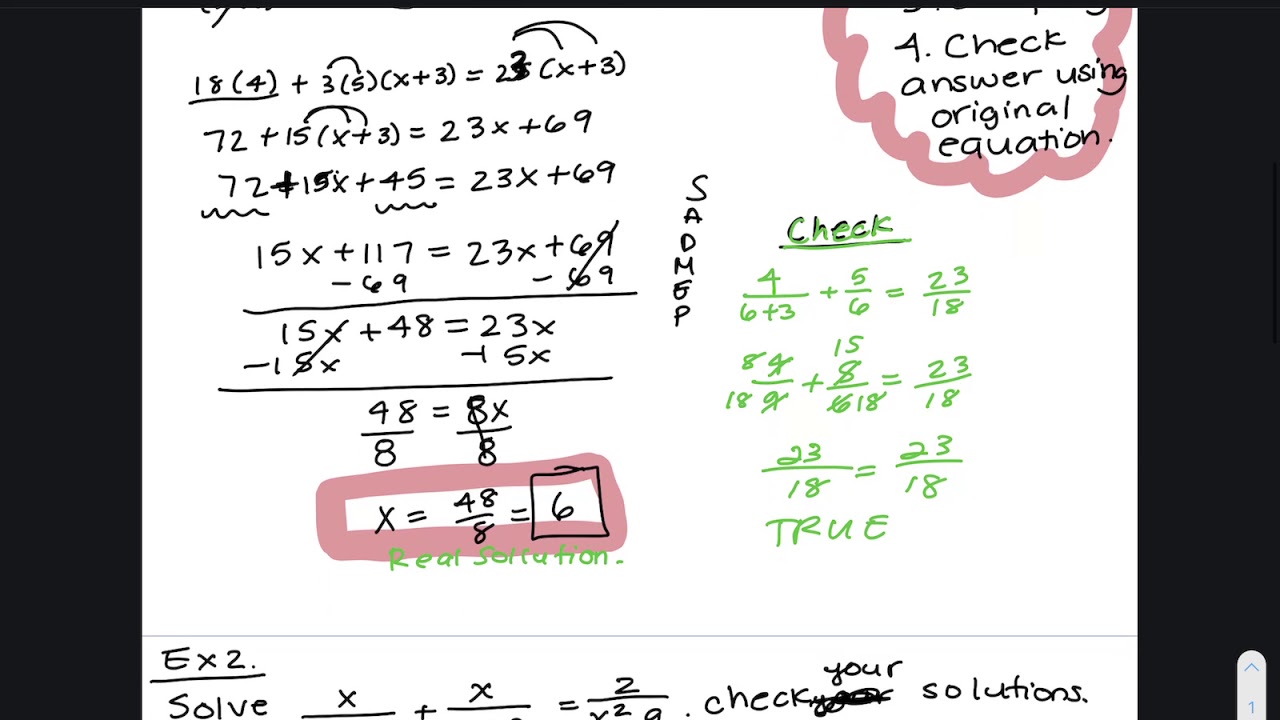 18(4) + 3(5)(x+3) = 23(x+3)
72 + 15(x+3) = 23x + 69
72 + 15x + 45 = 23x + 69
15x + 117 = 23x + 69
- 69 - 69
15x + 48 = 23x
-15x -15x
48/8 = 8x/8
x = 48/8 = 6
Real Sollution.
4. Check
answer using
original
equation.
S
A
D
M
E
P
Check
4/(6+3) + 5/6 = 23/18
8 4 15 5 23
18 9 + 6 18 = 18
23/18 = 23/18
TRUE
Ex 2.
your
Solve x + x = 2/(x²-9) . check solutions.
1